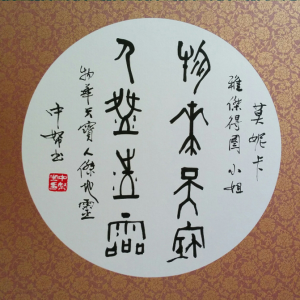 莫妮卡
雅傑得小姐
物華天寶
人傑地靈
物華天寶人傑地靈
中